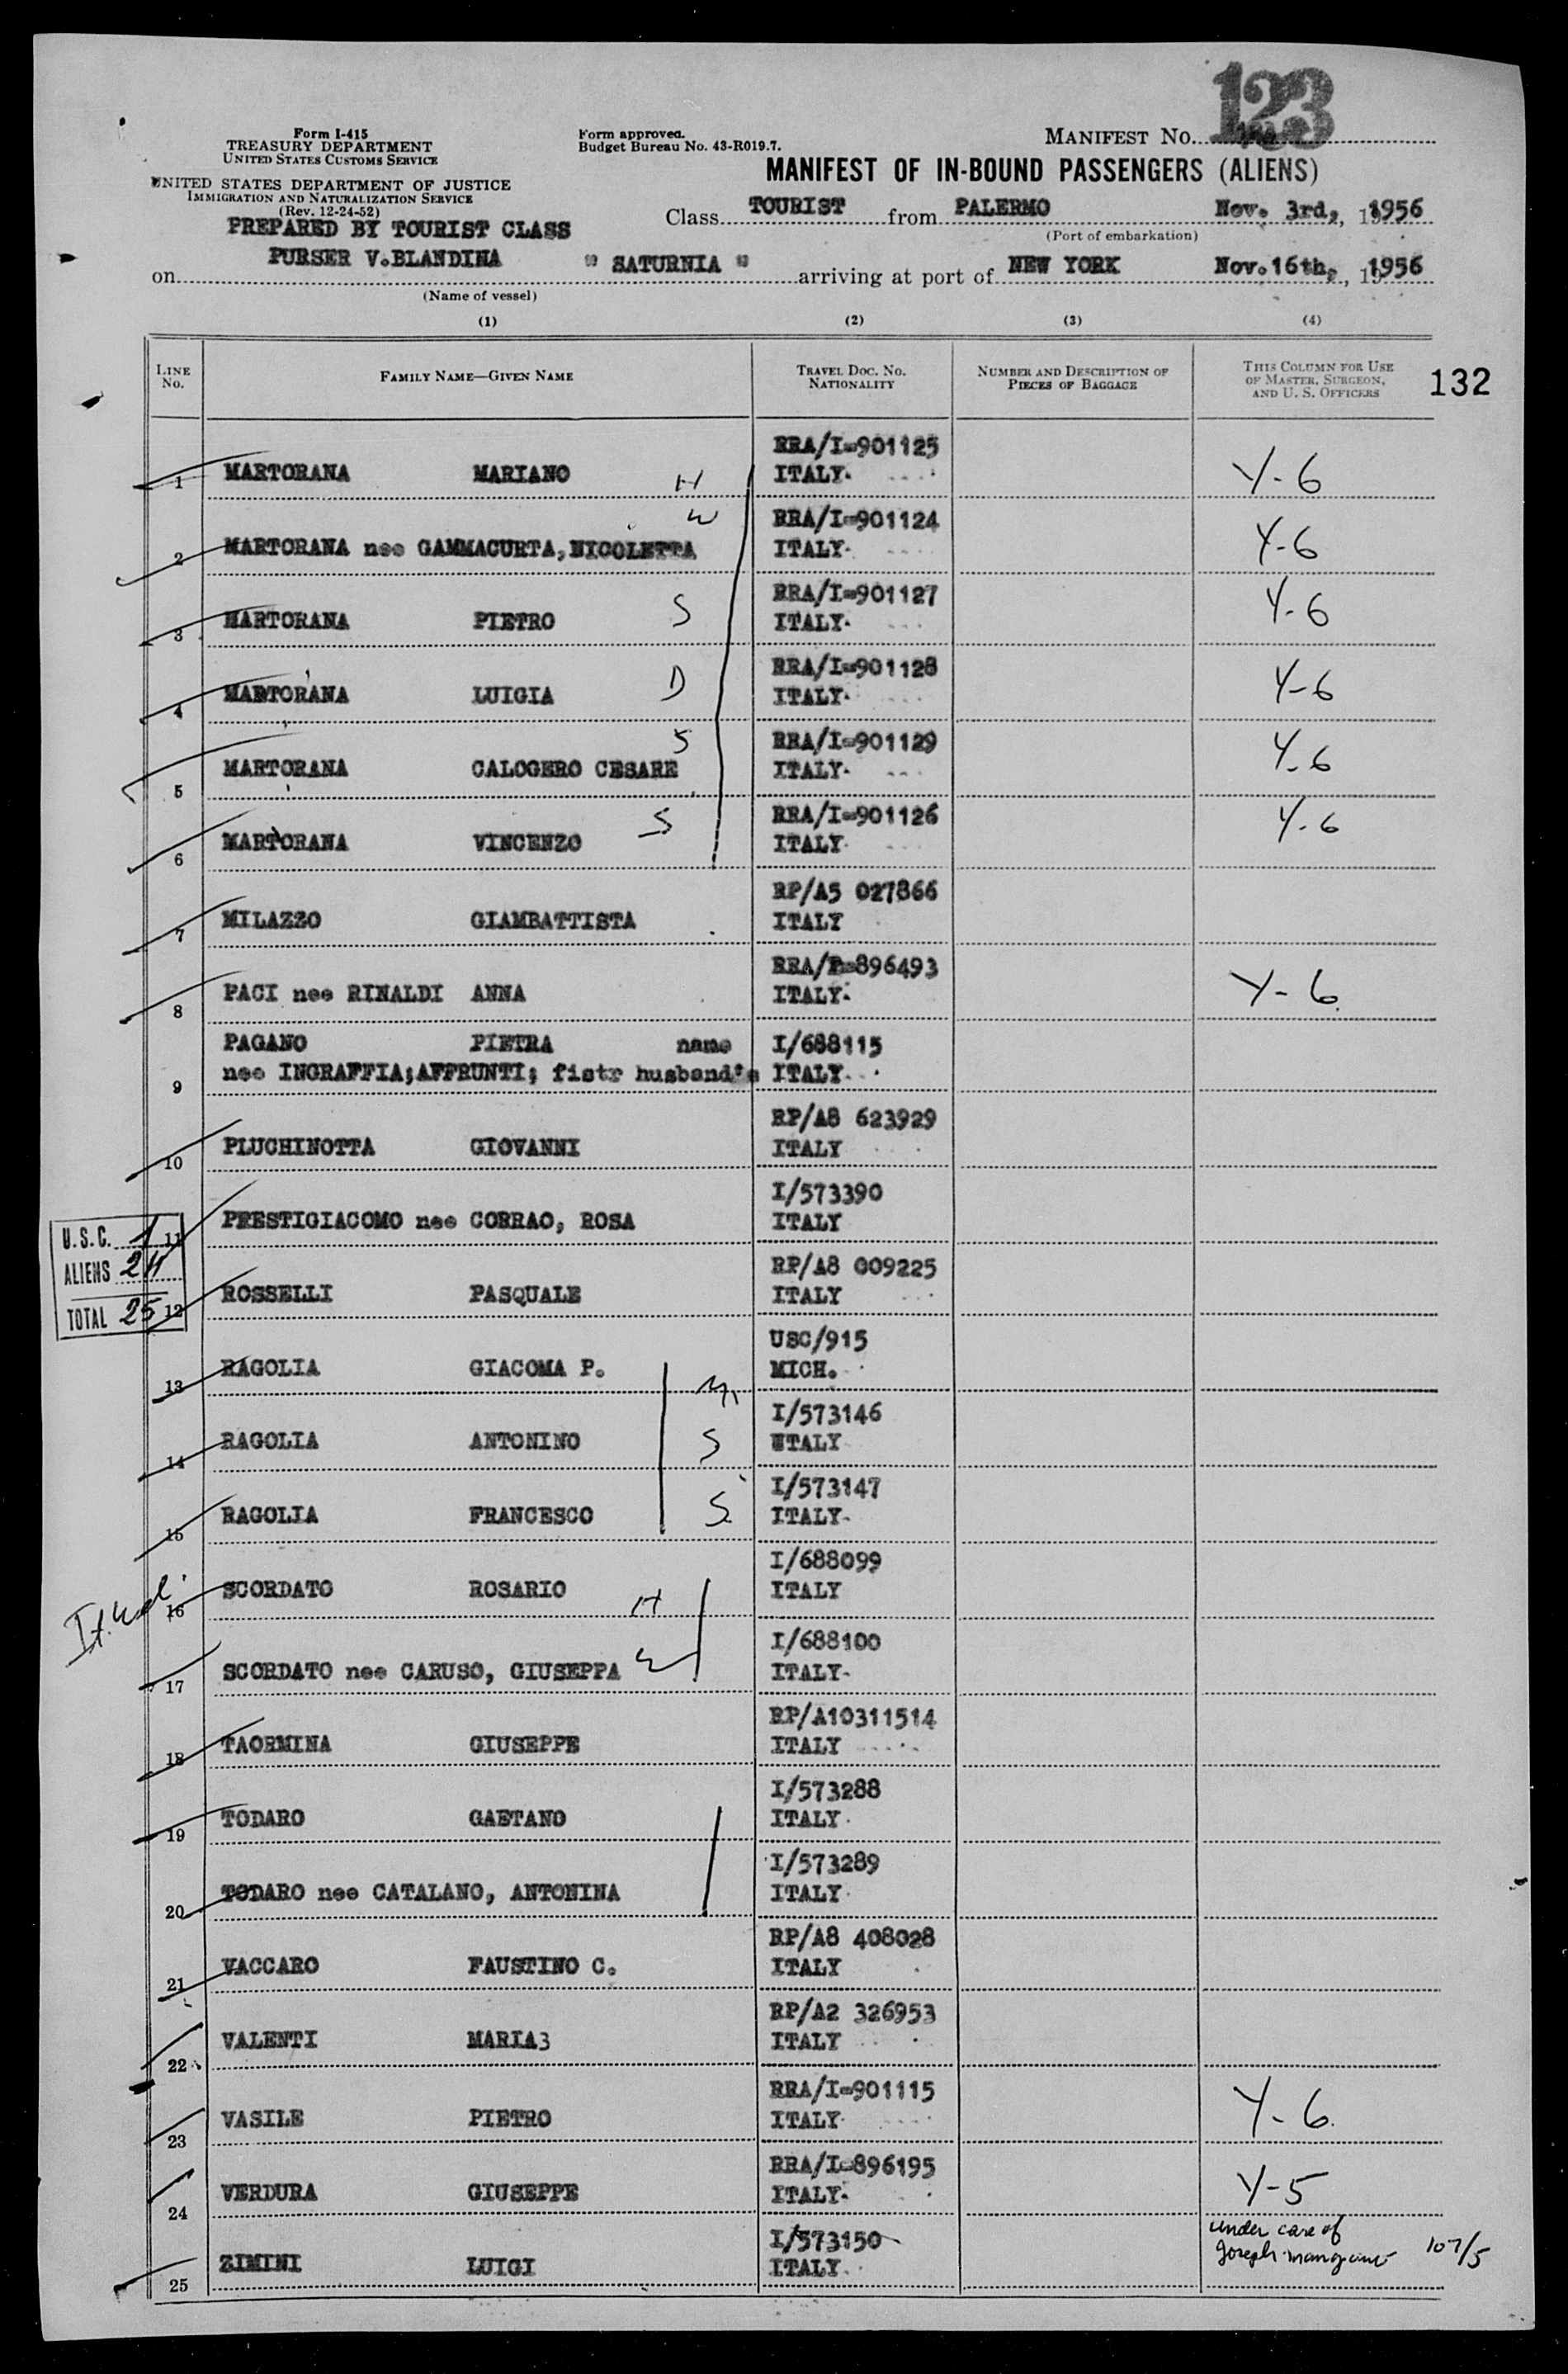 123
Form I-415
TREASURY DEPARTMENT
UNITED STATES CUSTOMS SERVICE
Form approved.
Budget Bureau No. 43-R019.7.
MANIFEST NO.
MANIFEST OF IN-BOUND PASSENGERS (ALIENS)
UNITED STATES DEPARTMENT OF JUSTICE
IMMIGRATION AND NATURALIZATION SERVICE
(Rev. 12-24-52)
PREPARED BY TOURIST CLASS
PURSER V.BLANDINA
Class TOURIST from PALERMO Nov. 3rd, 1956
(Port of embarkation)
on " SATURNIA " arriving at port of NEW YORK Nov.16th, 1956
(Name of vessel)
(1) (2) (3) (4)
LINE NO. FAMILY NAME—GIVEN NAME TRAVEL DOC. NO. NATIONALITY NUMBER AND DESCRIPTION OF PIECES OF BAGGAGE THIS COLUMN FOR USE OF MASTER, SURGEON, AND U. S. OFFICERS 132
RRA/I-901125
1 MARTORANA MARIANO H ITALY. Y-6
RRA/I-901124
2 MARTORANA nee GAMMACURTA,NICOLETTA W ITALY. Y-6
RRA/I-901127
3 MARTORANA PIETRO S ITALY. Y-6
RRA/I-901128
4 MARTORANA LUIGIA D ITALY. Y-6
RRA/I-901129
5 MARTORANA CALOGERO CESARE S ITALY. Y-6
RRA/I-901126
6 MARTORANA VINCENZO S ITALY. Y-6
RP/A5 027866
7 MILAZZO GIAMBATTISTA ITALY
RRA/I-896493
8 PACI nee RINALDI ANNA ITALY. Y-6.
PAGANO PIETRA name I/688115
9 nee INGRAFFIA;AFFRUNTI; fistr husband's ITALY.
RP/A8 623929
10 PLUCHINOTTA GIOVANNI ITALY
I/573390
11 PRESTIGIACOMO nee CORRAO, ROSA ITALY
U.S.C. 1
ALIENS 24
TOTAL 25
RP/A8 009225
12 ROSSELLI PASQUALE ITALY
USC/915
13 RAGOLIA GIACOMA P. M MICH.
I/573146
14 RAGOLIA ANTONINO S ITALY
I/573147
15 RAGOLIA FRANCESCO S ITALY.
I/688099
16 SCORDATO ROSARIO H ITALY
I/688100
17 SCORDATO nee CARUSO, GIUSEPPA W ITALY.
RP/A10311514
18 TAORMINA GIUSEPPE ITALY
I/573288
19 TODARO GAETANO ITALY.
I/573289
20 TODARO nee CATALANO, ANTONINA ITALY.
RP/A8 408028
21 VACCARO FAUSTINO C. ITALY
RP/A2 326953
22 VALENTI MARIA3 ITALY
RRA/I-901115
23 VASILE PIETRO ITALY. Y-6.
RRA/I-896195
24 VERDURA GIUSEPPE ITALY. Y-5
I/573150
25 ZIMINI LUIGI ITALY. under care of Joseph 107/5